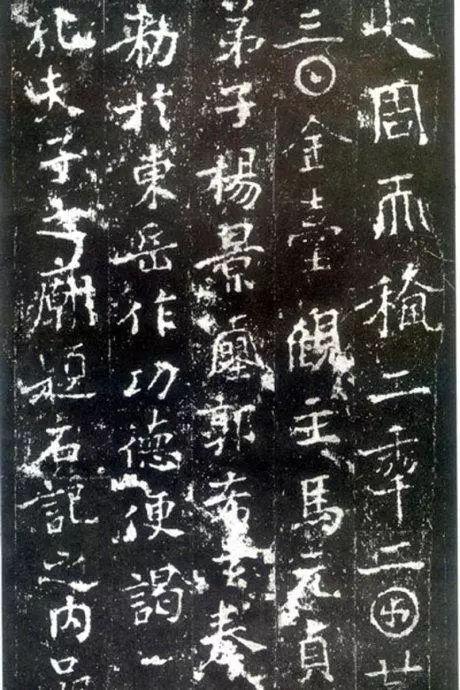 大周𠀑𥠢二𠡦二𠥱廿
三𡆠金臺觀主馬元貞
弟子楊景𡔈郭希玄奉
勅於東岳作功德便謁
孔夫子之廟題石記之内品